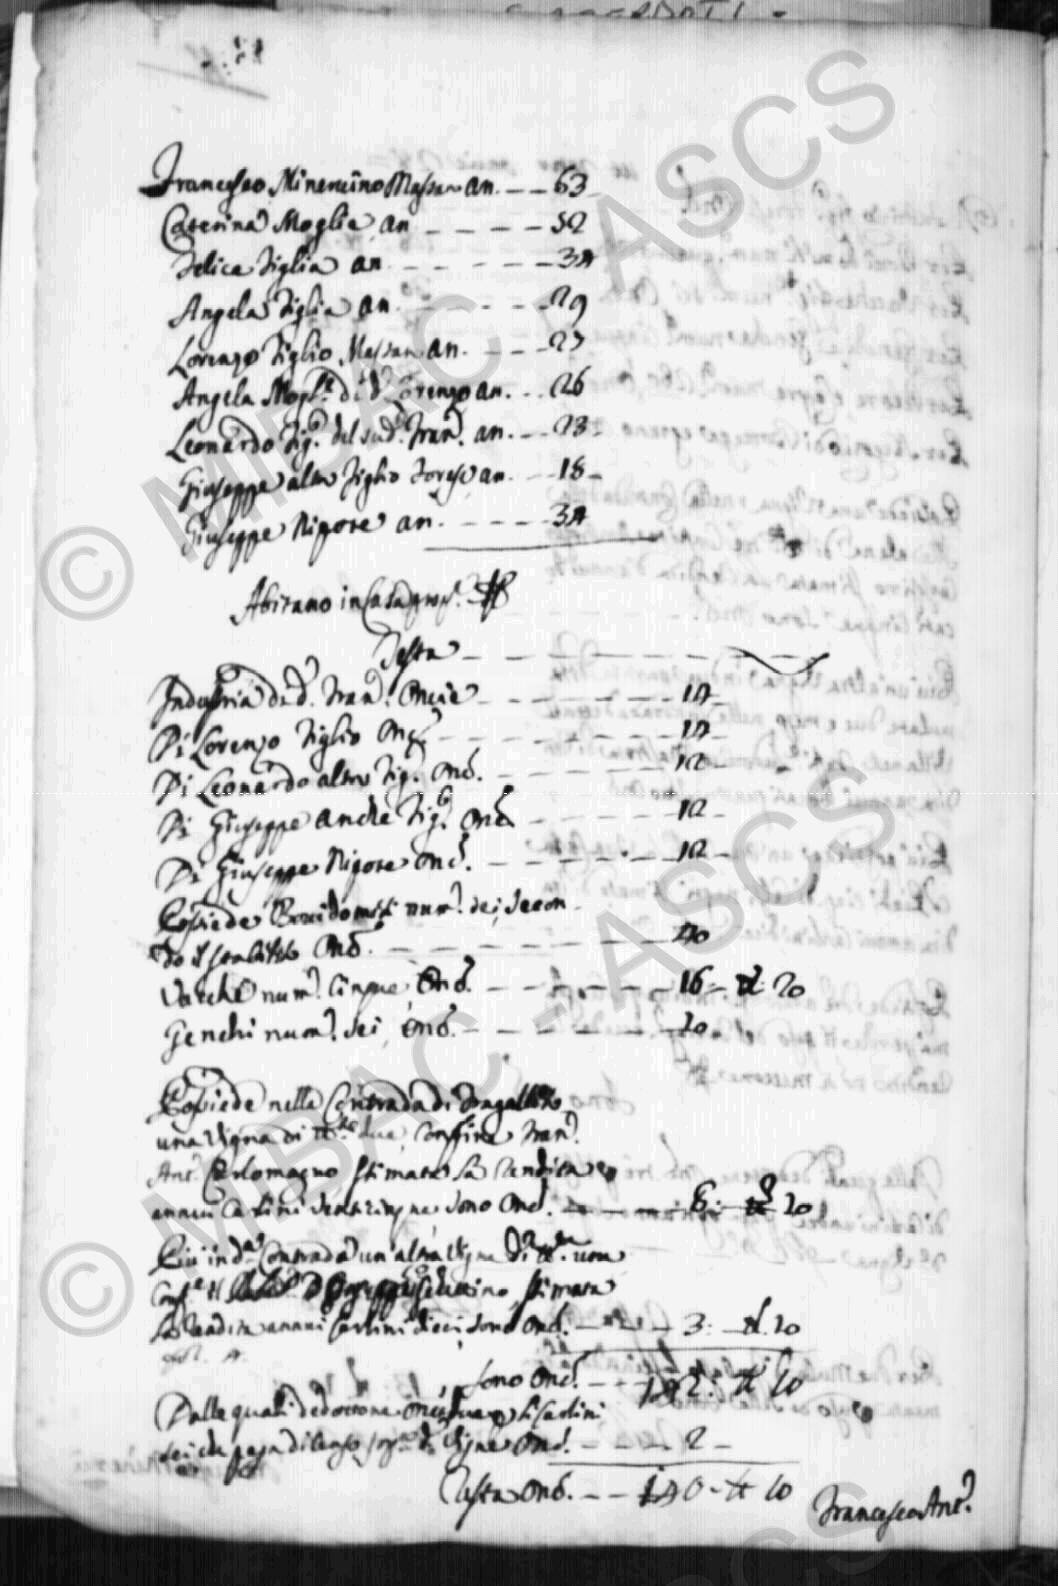 Francesco Minervino Massaro an. — — 63
Caterina Moglie an — — — — 52
Felice Figlia an — — — — 34
Angela Figlia an. — — — — 29
Lorenzo Figlio Massaro an. — — 27
Angela Mogl.e di d.o Lorenzo an. — — 26
Leonardo Fig.o del sud.o Fran.o an. — — 23
Giuseppe altro Figlio Forese an. — — 18
Giuseppe Nipote an. — — — — 34
Abitano in Casa prop.a
Testa — — — — — —
Industria di d.o Fran.o Oncie — — — — 14
Di Lorenzo Figlio Onc.e — — — — 14
Di Leonardo altro Fig.o Onc. — — — — 12
Di Giuseppe anche Fig.o Onc. — — — — 12
Di Giuseppe Nipote Onc. — — — — 12
Possiede Bovi domiti num.o sei, secon
do il stabilito Onc. — — — — 40
Vacche num.o Cinque, Onc. — — — — 16 — tt 20
Genchi num.o Sei, Onc. — — — — 20
Possiede nella Contrada di
una Vigna di due, Confine Fran.o
Ant.o Carlomagno stimata la rendita
annui Carlini Venticinque sono Onc. — — — 8 – tt 10
Più in d.a Contrada un'altra Vigna di una
Conf.e stimata
la rendita annui Carlini dieci sono Onc. — — — 3: — tt. 10
Sono Onc. — — 142: tt 10
Dalle quali dedottone Oncie due Carlini
sei che paga di Censo Vigne Onc. — — — 2 —
Resta Onc. — — 140 – tt 10
Francesco Ant.o
© MIBAC - ASCS
© MIBAC - ASCS